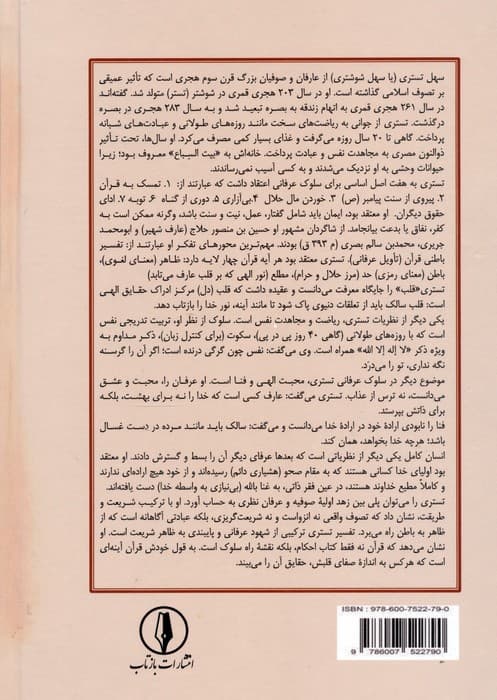 سهل تستری (یا سهل شوشتری) از عارفان و صوفیان بزرگ قرن سوم هجری است که تأثیر عمیقی
بر تصوف اسلامی گذاشته است. او در سال ۲۰۳ هجری قمری در شوشتر (تستر) متولد شد. گفته‌اند
در سال ۲۶۱ هجری قمری به اتهام زندقه به بصره تبعید شد و به سال ۲۸۳ هجری در بصره
درگذشت. تستری از جوانی به ریاضت‌های سخت مانند روزه‌های طولانی و عبادت‌های شبانه
پرداخت. گاهی تا ۲۰ سال روزه می‌گرفت و غذای بسیار کمی مصرف می‌کرد. او سال‌ها، تحت تأثیر
ذوالنون مصری به مجاهدت نفس و عبادت پرداخت. خانه‌اش به «بیت السباع» معروف بود؛ زیرا
حیوانات وحشی به او نزدیک می‌شدند و به کسی آسیب نمی‌رساندند.
تستری به هفت اصل اساسی برای سلوک عرفانی اعتقاد داشت که عبارتند از: ۱. تمسک به قرآن
۲. پیروی از سنت پیامبر (ص) ۳. خوردن مال حلال ۴.بی‌آزاری ۵. دوری از گناه ۶. توبه ۷. ادای
حقوق دیگران. او معتقد بود، ایمان باید شامل گفتار، عمل، نیت و سنت باشد، وگرنه ممکن است به
کفر، نفاق یا بدعت بیانجامد. از شاگردان مشهور او حسین بن منصور حلاج (عارف شهیر) و ابومحمد
جریری، محمدبن سالم بصری (م ۳۹۳ ق) بودند. مهم‌ترین محورهای تفکر او عبارتند از: تفسیر
باطنی قرآن (تأویل عرفانی). تستری معتقد بود هر آیه قرآن چهار لایه دارد: ظاهر (معنای لغوی)،
باطن (معنای رمزی) حد (مرز حلال و حرام)، مطلع (نور الهی که بر قلب عارف می‌تابد)
تستری«قلب» را جایگاه معرفت می‌دانست و عقیده داشت که قلب (دل) مرکز ادراک حقایق الهی
است؛ قلب سالک باید از تعلقات دنیوی پاک شود تا مانند آینه، نور خدا را بازتاب دهد.
یکی دیگر از نظریات تستری، ریاضت و مجاهدت نفس است. سلوک از نظر او، تربیت تدریجی نفس
است که با روزه‌های طولانی (گاهی ۴۰ روز پی در پی)، سکوت (برای کنترل زبان)، ذکر مداوم به
ویژه ذکر «لا إله إلا الله» همراه است. وی می‌گفت: نفس چون گرگی درنده است؛ اگر آن را گرسنه
نگه نداری، تو را می‌درَد.
موضوع دیگر در سلوک عرفانی تستری، محبت الهی و فنا است. او عرفان را، محبت و عشق
می‌دانست، نه ترس از عذاب. تستری می‌گفت: عارف کسی است که خدا را نه برای بهشت، بلکه
برای ذاتش بپرستد.
فنا را نابودی ارادهٔ خود در ارادهٔ خدا می‌دانست و می‌گفت: سالک باید مانند مرده در دست غسال
باشد؛ هرچه خدا بخواهد، همان کند.
انسان کامل یکی دیگر از نظریاتی است که بعدها عرفای دیگر آن را بسط و گسترش دادند. او معتقد
بود اولیای خدا کسانی هستند که به مقام صحو (هشیاری دائم) رسیده‌اند و از خود هیچ اراده‌ای ندارند
و کاملاً مطیع خداوند هستند، در عین فقر ذاتی، به غنا بالله (بی‌نیازی به واسطه خدا) دست یافته‌اند.
تستری را می‌توان پلی بین زهد اولیهٔ صوفیه و عرفان نظری به حساب آورد. او با ترکیب شریعت و
طریقت، نشان داد که تصوف واقعی نه انزواست و نه شریعت‌گریزی، بلکه عبادتی آگاهانه است که از
ظاهر به باطن راه می‌برد. تفسیر تستری ترکیبی از شهود عرفانی و پایبندی به ظاهر شریعت است. او
نشان می‌دهد که قرآن نه فقط کتاب احکام، بلکه نقشهٔ راه سلوک است. به قول خودش قرآن آینه‌ای
است که هرکس به اندازهٔ صفای قلبش، حقایق آن را می‌بیند.
ISBN : 978-600-7522-79-0
9 786007 522790
انتشارات بازتاب